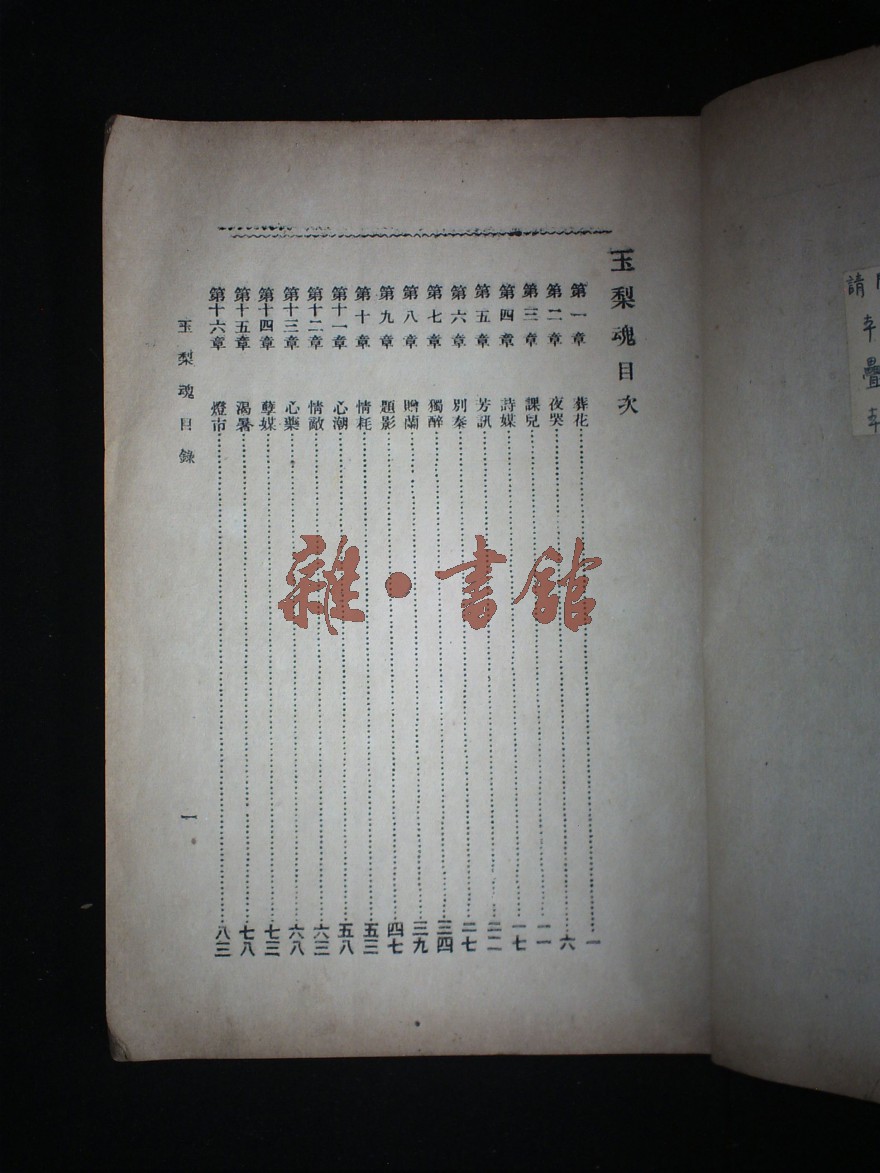 請
疊
玉梨魂目次
第一章 葬花……一
第二章 夜哭……六
第三章 課兒……一一
第四章 詩媒……一七
第五章 芳訊……二二
第六章 別秦……二七
第七章 獨醉……三四
第八章 贈蘭……三九
第九章 題影……四七
第十章 情耗……五三
第十一章 心潮……五八
第十二章 情敵……六三
第十三章 心藥……六八
第十四章 孽媒……七三
第十五章 渴暑……七八
第十六章 燈市……八三
玉梨魂目錄 一
雜·書館